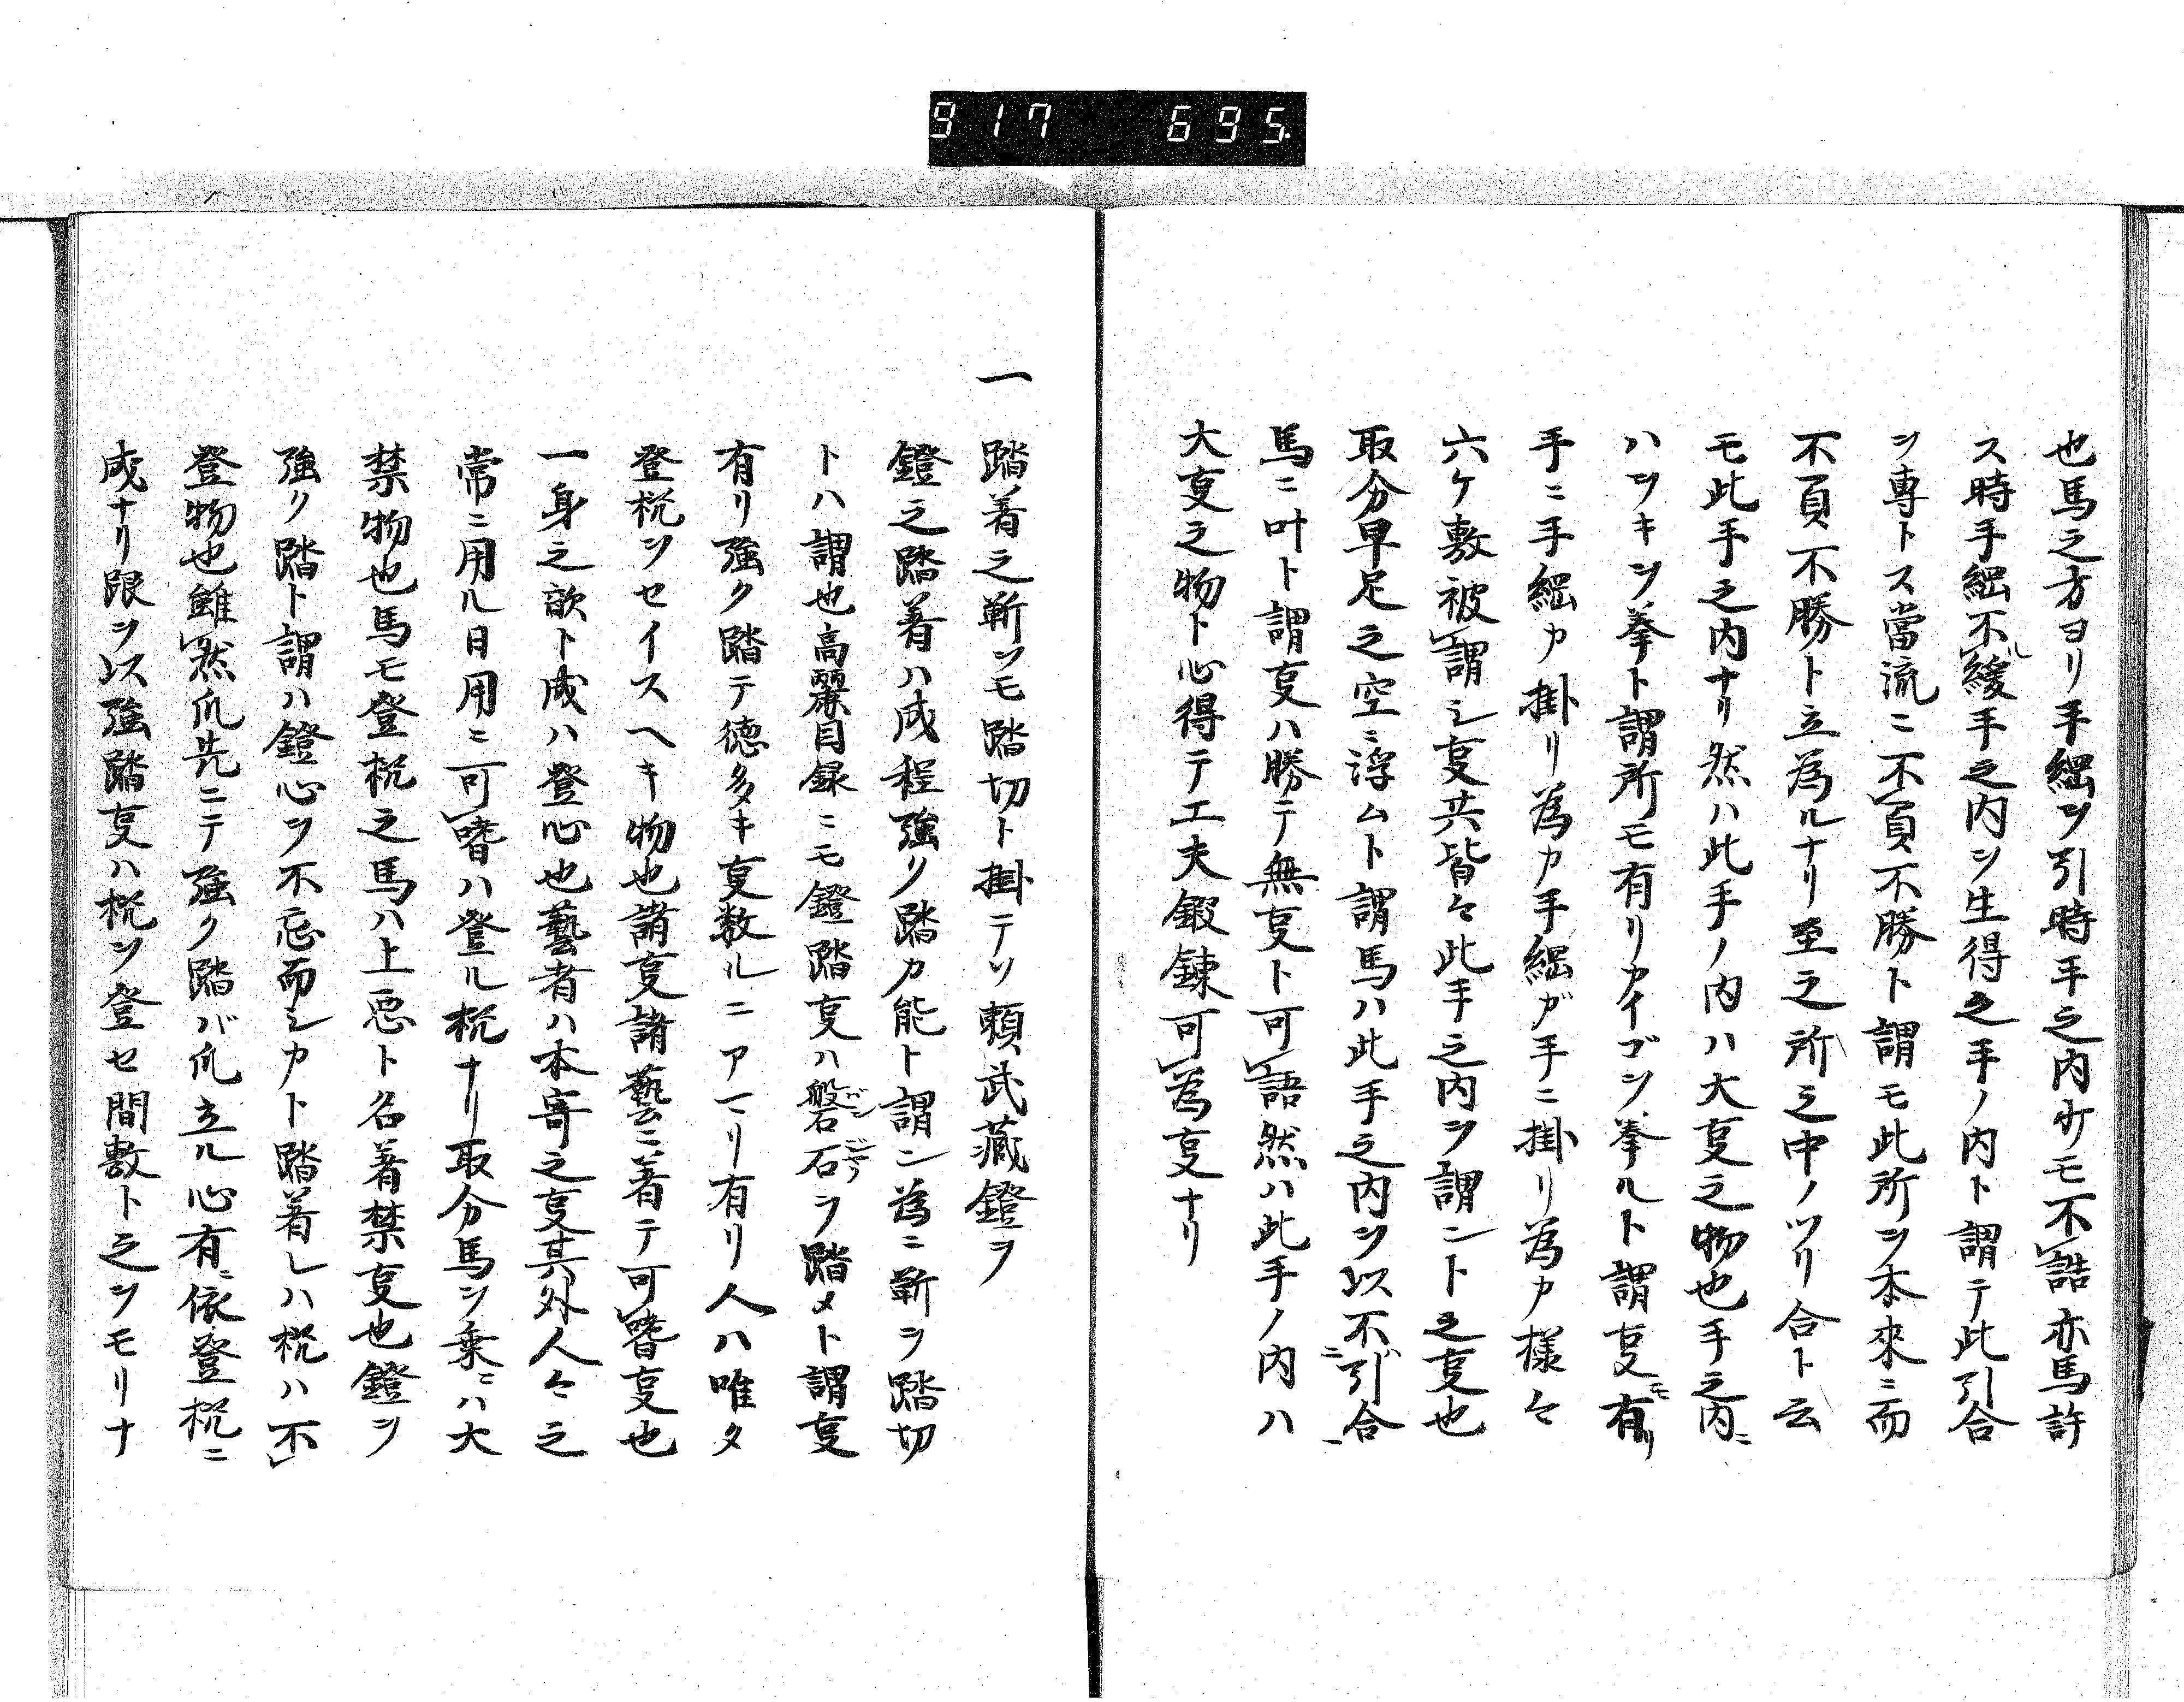 917 695.
也馬之方ヨリ手綱ヲ引時手之内少モ不詰亦馬許
ス時手綱不緩手之内ヲ生得之手ノ内ト謂テ此引合
ヲ専トス當流ニ不負不勝ト謂モ此所ヲ本來ニ而
不負不勝ト立為ルナリ至之所之中ノツリ合ト云
モ此手之内ナリ然ハ此手ノ内ハ大㕝之物也手之内ニ
ハヅキン拳ト謂所モ有リカイゴン拳ルト謂㕝モ有リ
手ニ手綱カ掛リ為カ手綱ガ手ニ掛リ為カ様々
六ケ敷被謂シ㕝共皆々此手之内ヲ謂ント之㕝也
取分早足之空ニ浮ムト謂馬ハ此手之内ヲ以不引合ニ
馬ニ叶ト謂㕝ハ勝テ無㕝ト可語然ハ此手ノ内ハ
大㕝之物ト心得テ工夫鍛錬可為㕝ナリ
一 踏着之靳ヲモ踏切ト掛テソ頼武藏鐙ヲ
鐙之踏着ハ成程強ク踏カ能ト謂ン為ニ靳ヲ踏切
トハ謂也高麗目録ニモ鐙踏㕝ハ磐石ヲ踏メト謂㕝
有リ強ク踏テ徳多キ㕝数ルニアマリ有リ人ハ唯タ
登梲ヲセイスヘキ物也諸㕝諸藝ニ着テ可嗜㕝也
一身之歒ト成ハ登心也藝者ハ本寄之㕝其外人々之
常ニ用ル日用ニ可嗜ハ登ル梲ナリ取分馬ヲ乗ニハ大
禁物也馬モ登梲之馬ハ上悪ト名着禁㕝也鐙ヲ
強ク踏ト謂ハ鐙心ヲ不忘而シカト踏着レハ梲ハ不
登物也雖然爪先ニテ強ク踏バ爪立ル心有ニ依登梲ニ
成ナリ跟ヲ以強踏㕝ハ梲ヲ登セ間敷ト之ヲモリナ